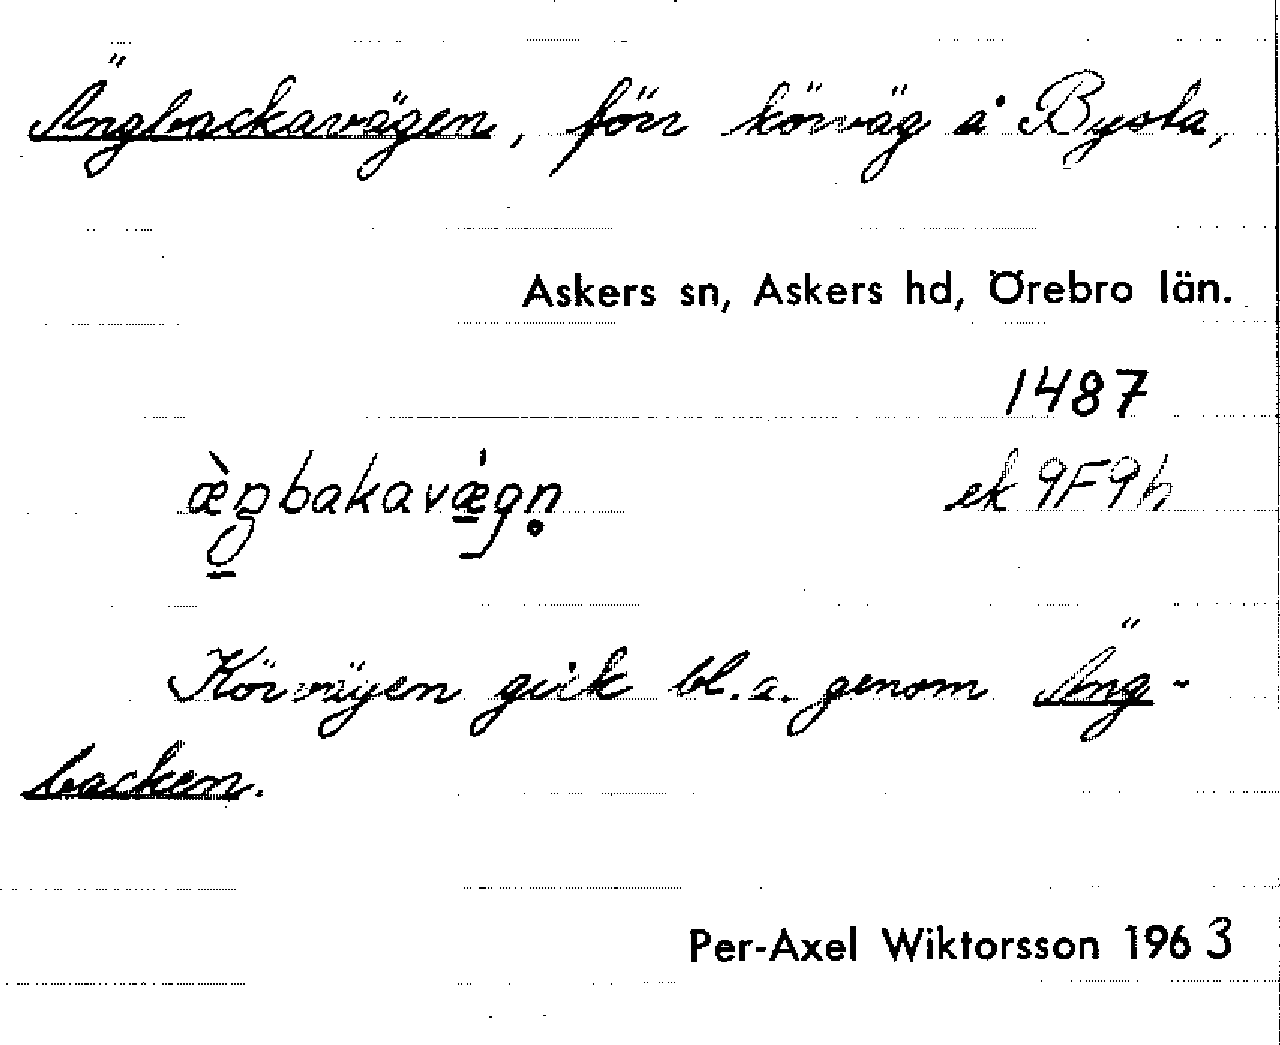 Ängbackavägen, förr körväg å Bysta,
Askers sn, Askers hd, Örebro län.
1487
æ̀ŋbakavǽgn̥
ek 9F9h
Körvägen gick bl.a. genom Äng-
backen.
Per-Axel Wiktorsson 1963